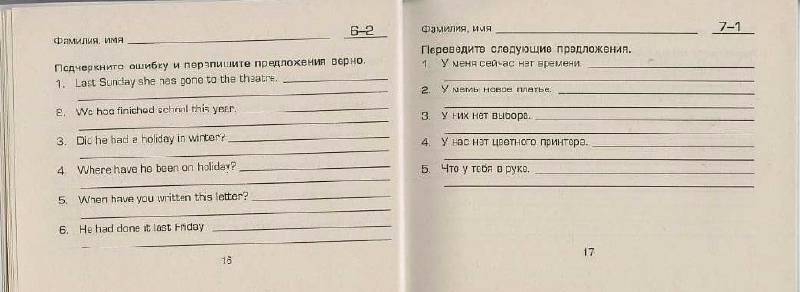 Фамилия, имя 6–2
Подчеркните ошибку и перепишите предложения верно.
1. Last Sunday she has gone to the theatre.
2. We has finished school this year.
3. Did he had a holiday in winter?
4. Where have he been on holiday?
5. When have you written this letter?
6. He had done it last Friday.
16
Фамилия, имя 7–1
Переведите следующие предложения.
1. У меня сейчас нет времени.
2. У мамы новое платье.
3. У них нет выбора.
4. У нас нет цветного принтера.
5. Что у тебя в руке.
17